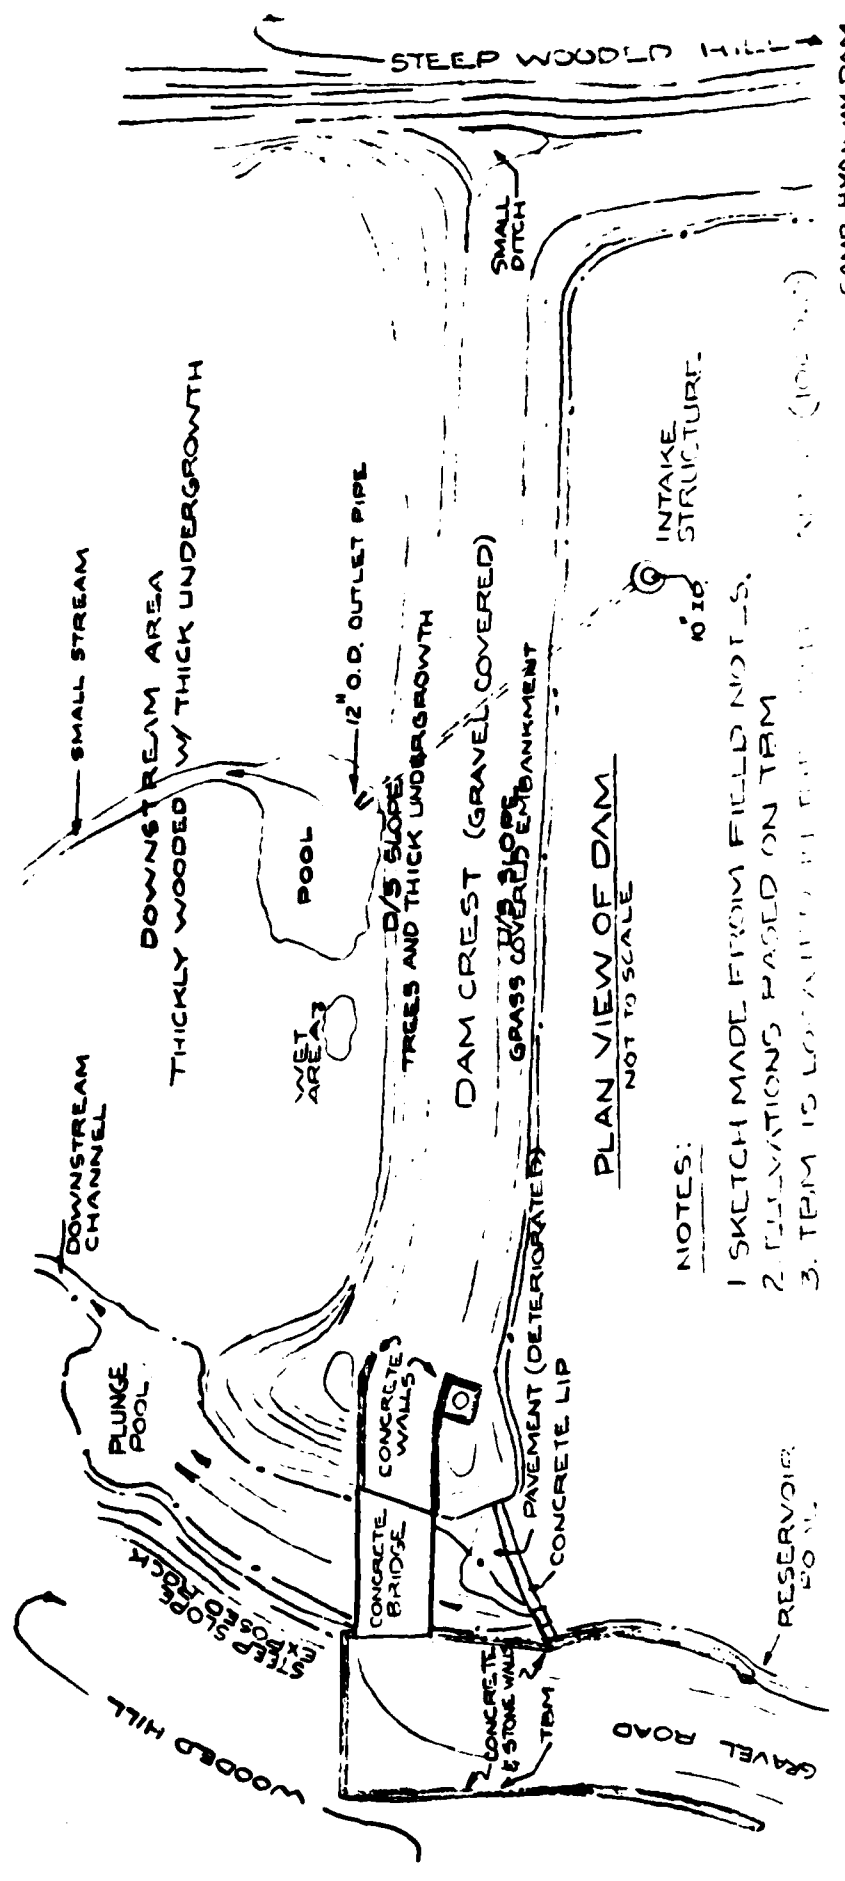 STEEP WOODED HILL
SMALL
DITCH
SMALL STREAM
DOWNSTREAM AREA
THICKLY WOODED W/ THICK UNDERGROWTH
12" O.D. OUTLET PIPE
POOL
WET
AREA
D/S SLOPE
TREES AND THICK UNDERGROWTH
DAM CREST (GRAVEL COVERED)
SLOPE
GRASS COVERED EMBANKMENT
INTAKE
STRUCTURE
10" I.D.
DOWNSTREAM
CHANNEL
PLUNGE
POOL
STEEP SLOPE
EXPOSED ROCK
WOODED HILL
CONCRETE
WALLS
CONCRETE
BRIDGE
PAVEMENT (DETERIORATED)
CONCRETE LIP
CONCRETE
& STONE WALLS
TBM
GRAVEL ROAD
RESERVOIR
PLAN VIEW OF DAM
NOT TO SCALE
NOTES:
1 SKETCH MADE FROM FIELD NOTES.
2. ELEVATIONS BASED ON TBM
3. TBM IS LOCATED